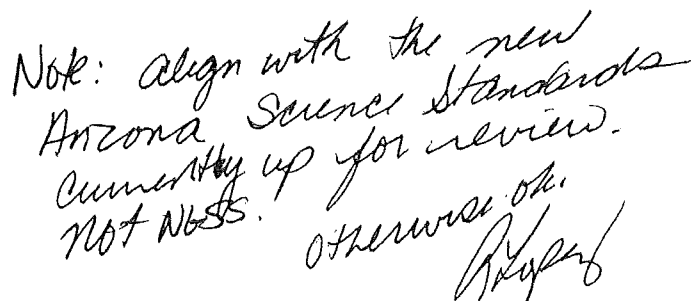 Note: align with the new
Arizona Science Standards
currently up for review.
not NGSS.
otherwise ok.